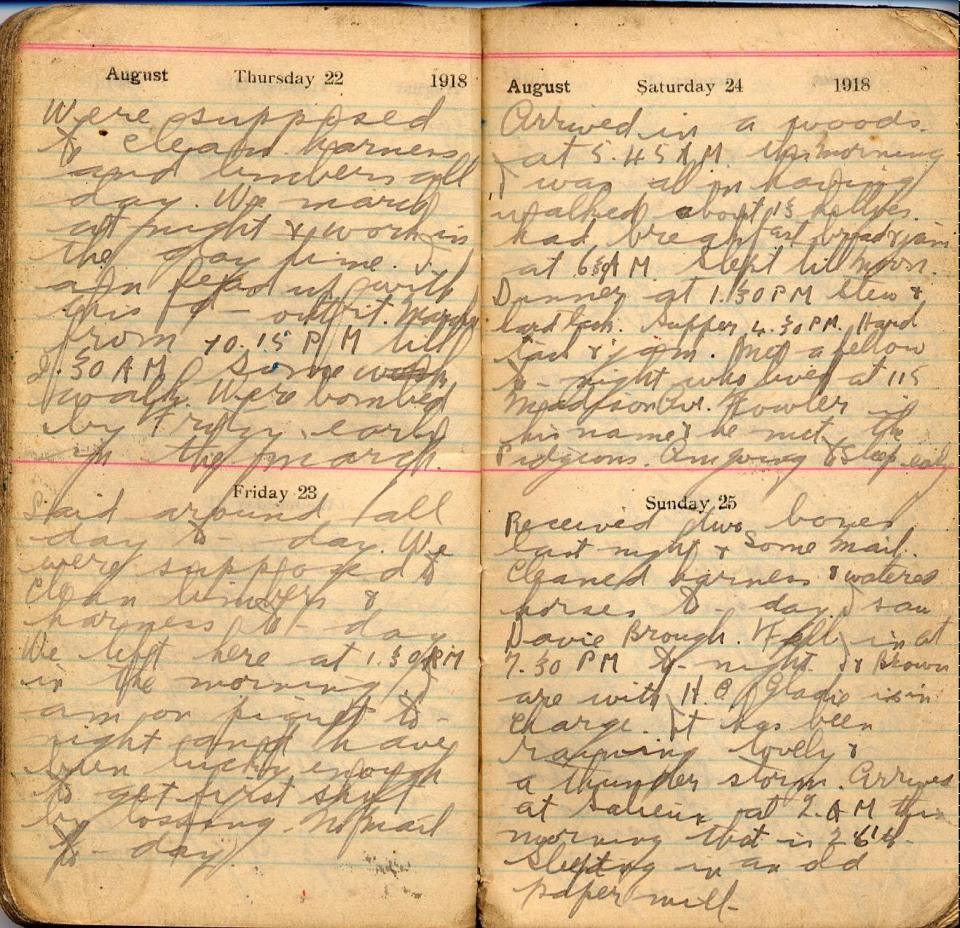 August Thursday 22 1918
Were supposed
to clean harness
and limbers all
day. We march
at night & work in
the day time. I
am fead up with
this F- outfit. March
from 10.15 P M till
2.30 A M some
walk. Were bombed
by Fritzy early
in the march.
Friday 23
Laid around all
day to-day. We
were supposed to
clean limbers &
harness to-day
We left here at 1.30 AM
in the morning I
am on piquet to-
night and have
been lucky enough
to get first shift
by tossing. No mail
to-day
August Saturday 24 1918
Arrived in a woods
at 5.45 A M. this morning
I was all in having
walked about 15 miles.
had breakfast bread & jam
at 6.30 A M slept till noon.
Dinner at 1.30 PM stew &
hard tack. Supper 4.30 PM. Hard
tack & jam. Met a fellow
to-night who lives at 115
Madison Ave. Fowler is
his name & he met the
Pidgeons. Am going to sleep early
Sunday 25
Received two boxes
last night & some mail.
Cleaned harness & watered
horses to-day. I saw
Davie Brough. Fall in at
7.30 PM to-night. I & Brown
are with H.Q. Gladie is in
charge. It has been
raining lovely &
a thunder storm. Arrived
at at 2. A M this
morning that is 26th-
Sleeping in an old
paper mill-